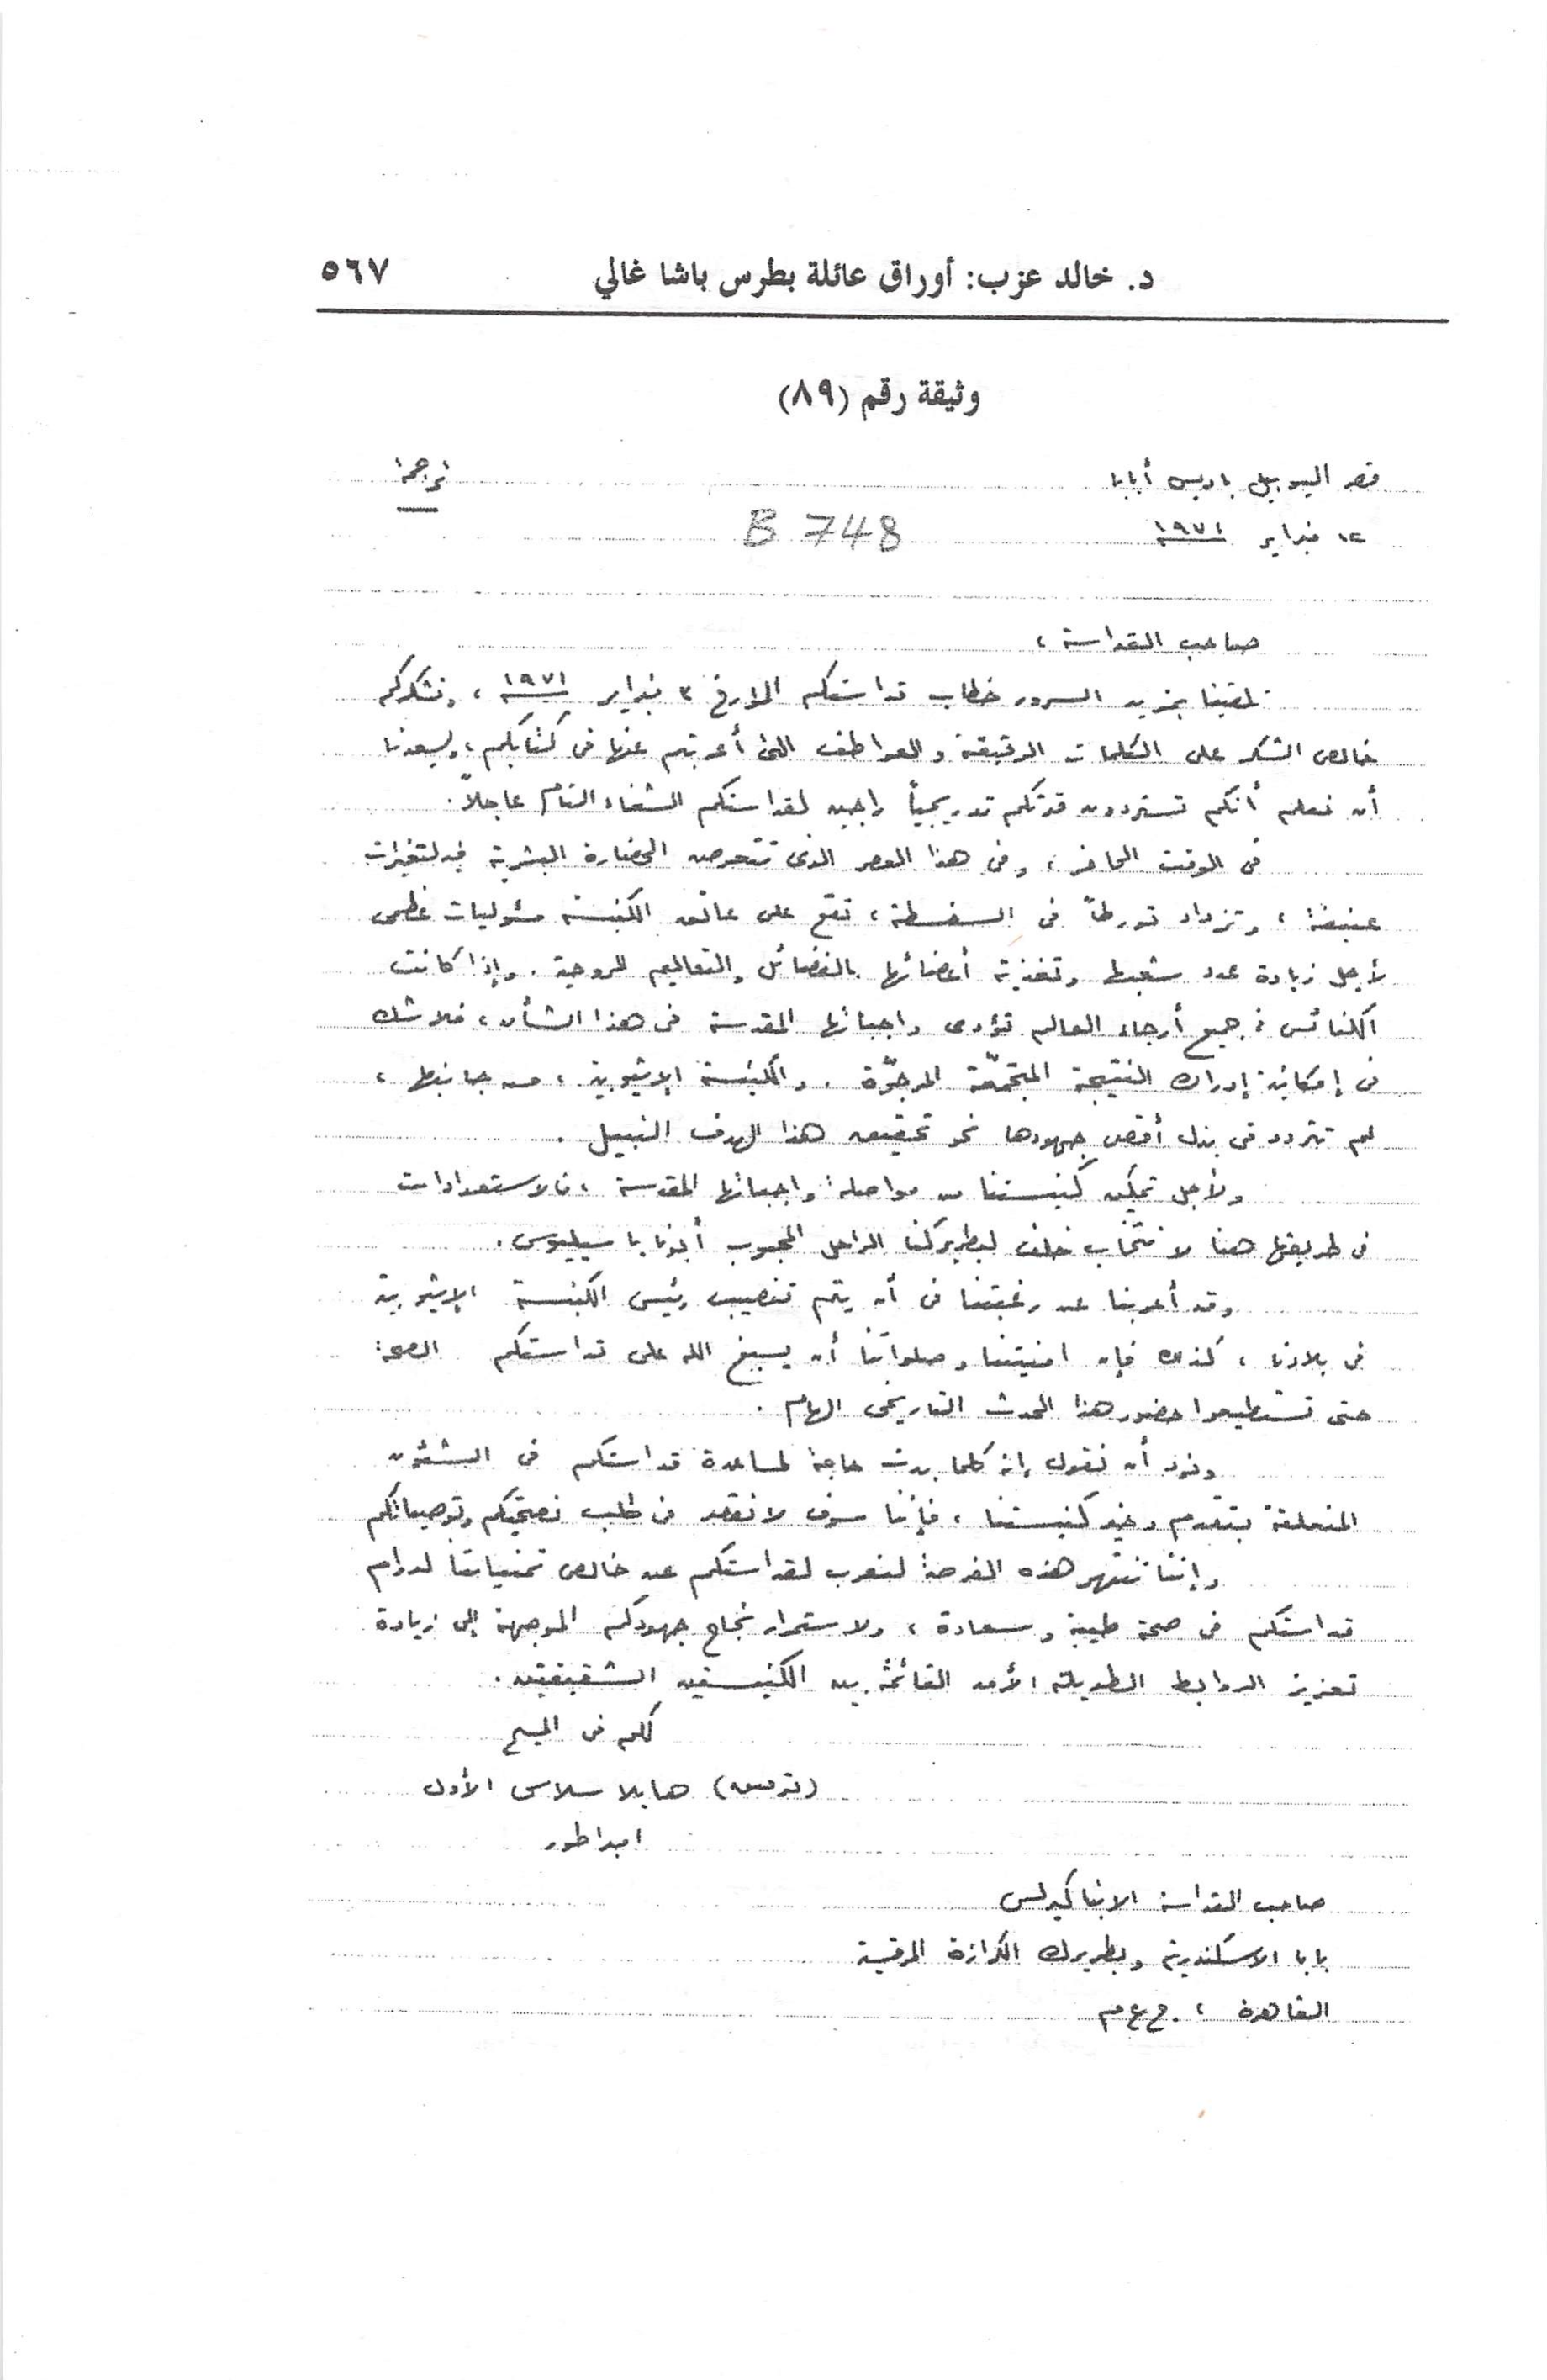 د. خالد عزب: أوراق عائلة بطرس باشا غالي ٥٦٧
وثيقة رقم (٨٩)
قصر اليوبيل باديس أبابا ترجمة
١٢ فبراير ١٩٧١ B 748
صاحب القداسة ،
تلقينا بمزيد السرور خطاب قداستكم المؤرخ ٢ فبراير ١٩٧١ ، ونشكركم
خالص الشكر على الكلمات الرقيقة والعواطف التى أعربتم عنها فى كتابكم ، ويسعدنا
أن نعلم أنكم تستردون قوتكم تدريجياً راجين لقداستكم الشفاء التام عاجلاً .
فى الوقت الحاضر ، وفى هذا العصر الذى تتعرض الحضارة البشرية فيه لتغيرات
عنيفة ، وتزداد تورطاً فى السفسطة ، تقع على عاتق الكنيسة مسئوليات عظمى
لأجل زيادة عدد شعبها وتغذية أعضائها بالفضائل والتعاليم الروحية . وإذا كانت
الكنائس فى جميع أرجاء العالم تؤدى واجباتها المقدسة فى هذا الشأن ، فلا شك
فى إمكانية إدراك النتيجة المتجمعة المرجوّة . والكنيسة الإثيوبية ، من جانبها ،
لم تتردد فى بذل أقصى جهودها نحو تحقيق هذا الهدف النبيل .
ولأجل تمكين كنيستنا من مواصلة واجباتها المقدسة ، فالاستعدادات
فى طريقها هنا لانتخاب خلف لبطريركنا الراحل المحبوب أبونا باسيليوس .
وقد أعربنا عن رغبتنا فى أن يتم تنصيب رئيس الكنيسة الإثيوبية
فى بلادنا ، كذلك فإن امنيتنا وصلواتنا أن يسبغ الله على قداستكم الصحة
حتى تستطيعوا حضور هذا الحدث التاريخى الهام .
ونود أن نقول إنه كلما بدت حاجة لمساعدة قداستكم فى الشئون
المتعلقة بتقدم وخير كنيستنا ، فإننا سوف لا نقصر فى طلب نصيحتكم وتوصياتكم
وإننا ننتهز هذه الفرصة لنعرب لقداستكم عن خالص تمنياتنا لدوام
قداستكم فى صحة طيبة وسعادة ، ولاستمرار نجاح جهودكم الموجهة إلى زيادة
تعزيز الروابط الطويلة الأمد القائمة بين الكنيستين الشقيقتين .
لكم فى المسيح
(توقيع) هايلا سلاسى الأول
امبراطور
صاحب القداسة الانبا كيرلس
بابا الاسكندرية وبطريرك الكرازة المرقسية
القاهرة ، ج ع م